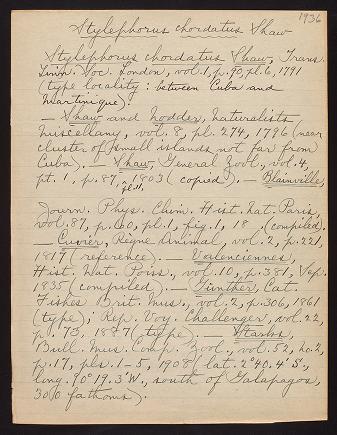 1936
Stylephorus chordatus Shaw
Stylephorus chordatus Shaw, Trans.
Linn. Soc. London, vol. 1, p. 90, pl. 6, 1791
(type locality: between Cuba and
Martinique).
— Shaw and Nodder, Naturalists
Miscellany, vol. 8, pl. 274, 1796 (near
cluster of small islands not far from
Cuba). — Shaw, General Zool., vol. 4,
pt. 1, p. 87, pl. 11, 1803 (copied). — Blainville,
Journ. Phys. Chim. Hist. Nat. Paris,
vol. 87, p. 60, pl. 1, fig. 1, 18 , (compiled).
— Cuvier, Règne Animal, vol. 2, p. 221,
1817 (reference). — Valenciennes,
Hist. Nat. Poiss., vol. 10, p. 381,
1835 (compiled). — Günther, Cat.
Fishes Brit. Mus., vol. 2, p. 306, 1861
(type); Rep. Voy. Challenger, vol. 22,
p. 73, 1887 (type). — Starks,
Bull. Mus. Comp. Zool., vol. 52, no. 2,
p. 17, pls. 1-5, 1908 (lat. 2°40.4' S.,
long. 90°19.3' W., south of Galapagos,
300 fathoms).